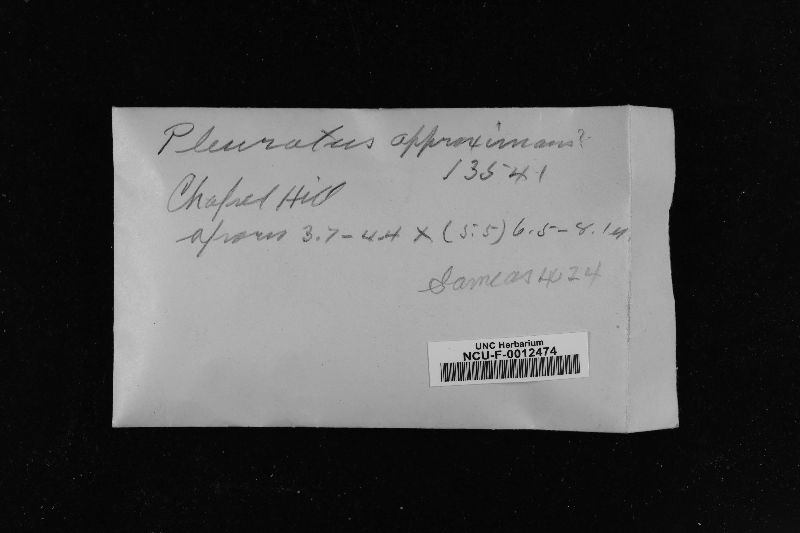 Pleurotus approximans?
13541
Chapel Hill
spores 3.7-4.4 X (5.5) 6.5-8.1µ.
Same as 424
UNC Herbarium
NCU-F-0012474